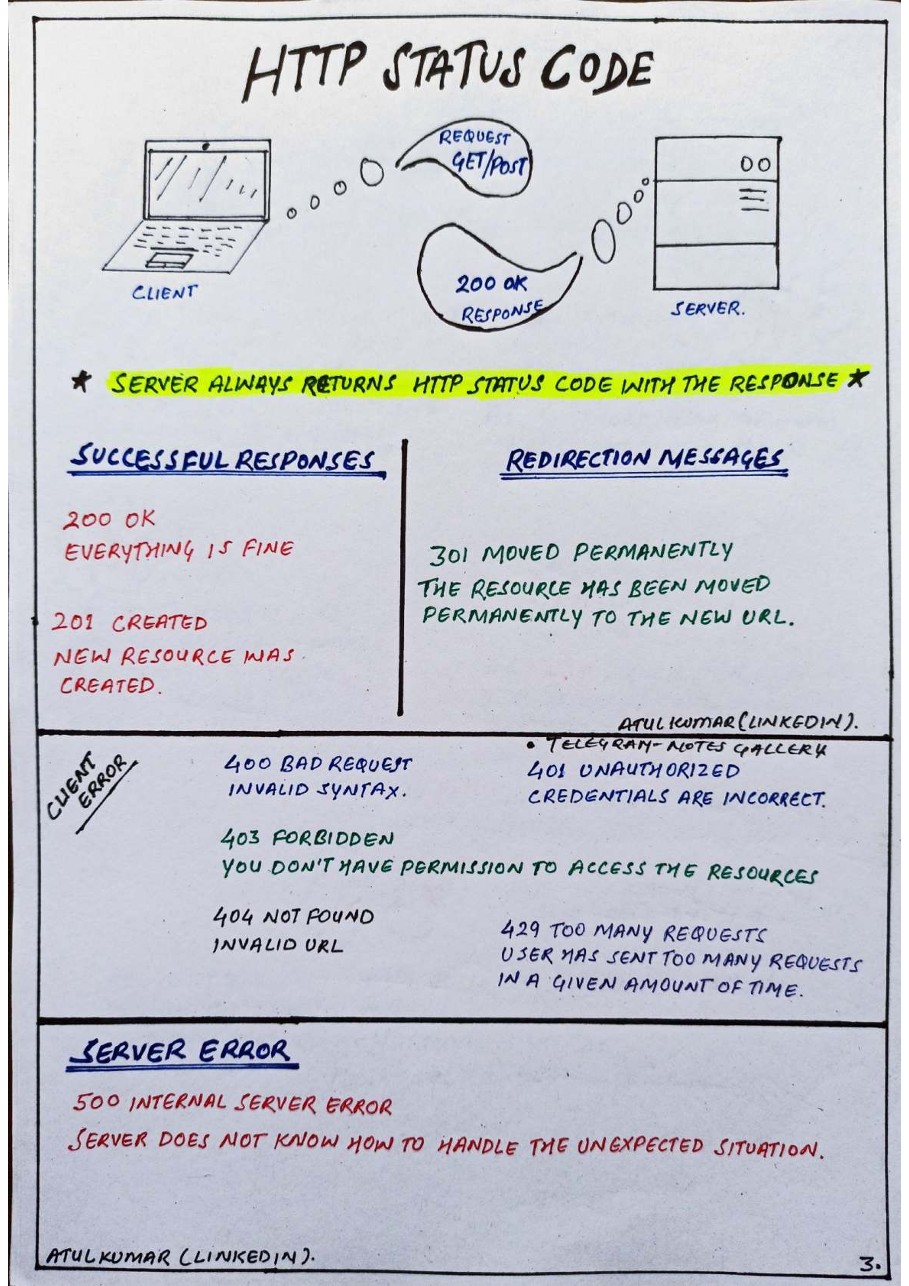 HTTP STATUS CODE
REQUEST
GET/POST
200 OK
RESPONSE
CLIENT
SERVER.
★ SERVER ALWAYS RETURNS HTTP STATUS CODE WITH THE RESPONSE ★
SUCCESSFUL RESPONSES
200 OK
EVERYTHING IS FINE
201 CREATED
NEW RESOURCE WAS
CREATED.
REDIRECTION MESSAGES
301 MOVED PERMANENTLY
THE RESOURCE HAS BEEN MOVED
PERMANENTLY TO THE NEW URL.
ATULKUMAR (LINKEDIN).
• TELEGRAM-NOTES GALLERY
CLIENT
ERROR
400 BAD REQUEST
INVALID SYNTAX.
401 UNAUTHORIZED
CREDENTIALS ARE INCORRECT.
403 FORBIDDEN
YOU DON'T HAVE PERMISSION TO ACCESS THE RESOURCES
404 NOT FOUND
INVALID URL
429 TOO MANY REQUESTS
USER HAS SENT TOO MANY REQUESTS
IN A GIVEN AMOUNT OF TIME.
SERVER ERROR
500 INTERNAL SERVER ERROR
SERVER DOES NOT KNOW HOW TO HANDLE THE UNEXPECTED SITUATION.
ATULKUMAR (LINKEDIN).
3.